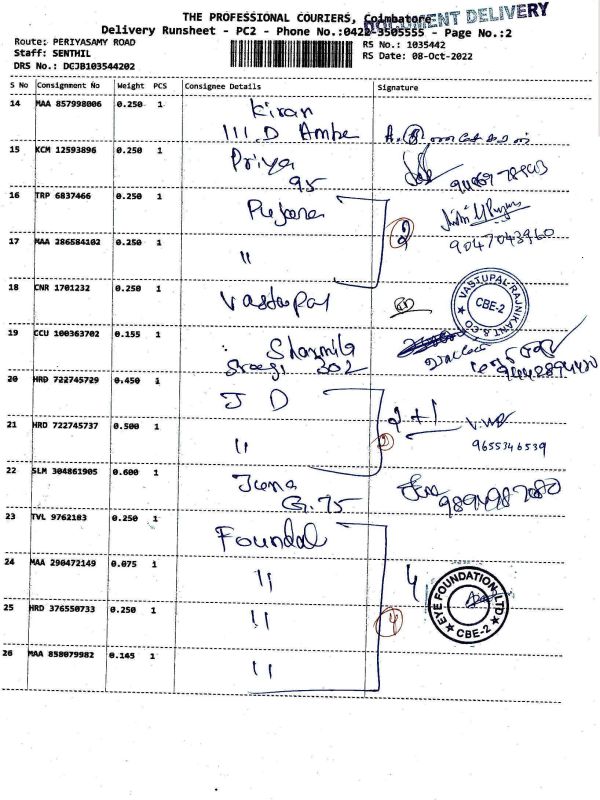 THE PROFESSIONAL COURIERS, Coimbatore
DOCUMENT DELIVERY
Delivery Runsheet - PC2 - Phone No.:0422-3505555 - Page No.:2
Route: PERIYASAMY ROAD
RS No.: 1035442
Staff: SENTHIL
RS Date: 08-Oct-2022
DRS No.: DCJB103544202
S No Consignment No Weight PCS Consignee Details Signature
14 MAA 857998006 0.250 1 Kiran
111.D Ambe
15 KCM 12593896 0.250 1 Priya
95
16 TRP 6837466 0.250 1 Pujara
2
9047043960
17 MAA 286584102 0.250 1 "
18 CNR 1701232 0.250 1 Vastupal
VASTUPAL RAJNIKANT & CO
CBE-2
19 CCU 100363702 0.155 1 Sharmila
302
20 HRD 722745729 0.450 1 J D
2+1
21 HRD 722745737 0.500 1 "
2
9655346539
22 SLM 304861905 0.600 1
G.75
23 TVL 9762183 0.250 1 Foundal
24 MAA 290472149 0.075 1 "
4
EYE FOUNDATION LTD
CBE-2
25 HRD 376550733 0.250 1 "
4
26 MAA 858079982 0.145 1 "